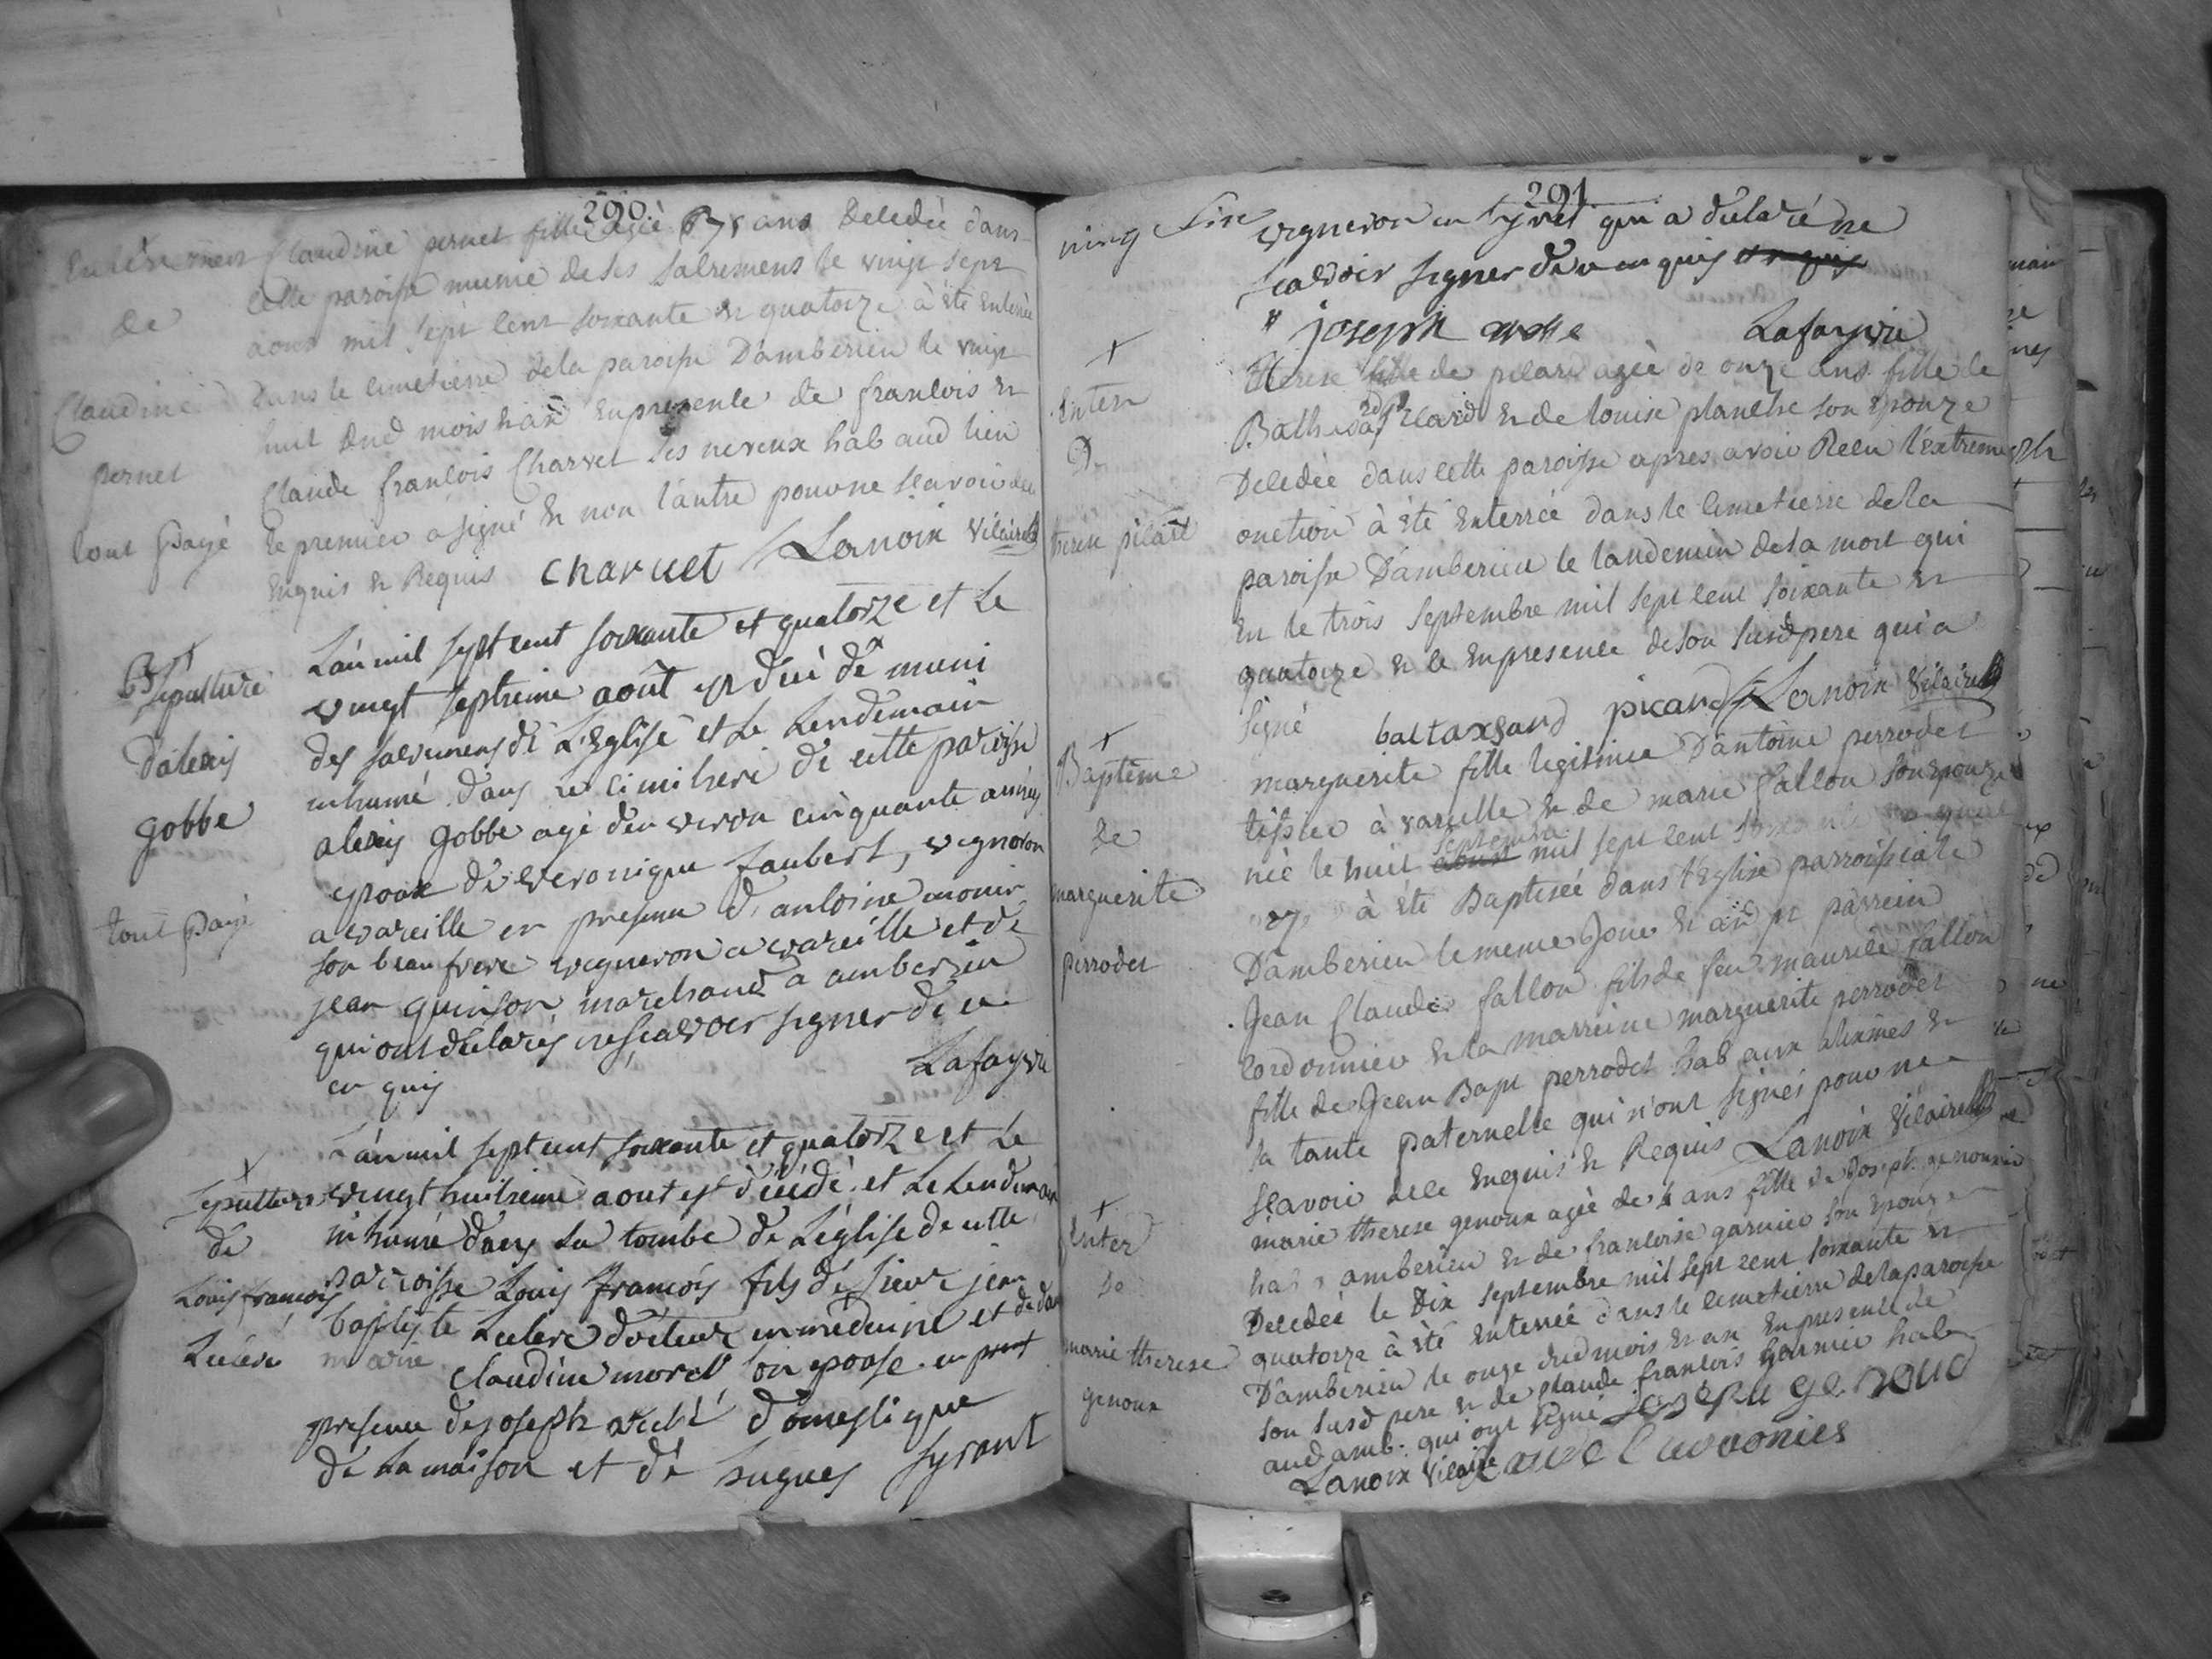 290.
Enterrement
de
Claudine
pernet
tout payé
Claudine pernet fille agée ans decedée dans
cette paroisse munie de ses sacremens le vingt sept
aout mil sept cent soixante et quatorze à été enterrée
dans le cimetierre de la paroisse D'amberieu le vingt
huit dud mois & an en presence de francois et
Claude francois Charvet ses neveux hab aud lieu
le premier a signé & non l'autre pour ne scavoir de ce
enquis & Requis charvet Lanoix vicaire
Sepulture
D'alexis
gobbe
tout payé
L'an mil sept cent soixante et quatorze et le
vingt septieme août est décédé muni
des sacremens de L'Eglise et Le Lendemain
inhumé dans Le cimitiere de cette paroisse
alexis gobbe agé d'environ cinquante années
epoux de veronique Jaubert, vigneron
a vareille en presence d'antoine monin
son beau frere vigneron a vareille et de
jean quinson marchand a amberieu
qui ont déclarés ne scavoir signer de ce
en quis Lafayvie
Sepulture
de
Louis françois
Leclerc
L'an mil sept cent soixante et quatorze et Le
vingt huitieme aout est décédé et Le Lendemain
inhumé dans La tombe de L'église de cette
parroisse Louis françois fils de sieur jean
baptiste Leclerc docteur en medecine et de dame
marie Claudine morel son epouse en
presence de joseph domestique
de La maison et de hugues
291
vigneron en qui a declaré ne
scavoir signer de ce en quis
joseph Lafayvie
Enterr
D.
therese picard
Therese de picard agée de onze ans fille de
Balthesard picard & de louise planche son epouze
Decedée dans cette paroisse apres avoir Recu l'extreme
onction à été enterrée dans le cimetierre de la
paroisse D'amberieu le landemain de sa mort qui
est le trois septembre mil sept cent soixante et
quatorze & ce en presence de son susd pere qui a
signé baltaxsard picard Lanoix vicaire
Baptême
de
marguerite
perrodet
marguerite fille legitime D'antoine perrodet
tissier à vareille & de marie fallon son epouze
née le huit septembre mil sept cent
à été Baptisée dans l'Eglise parroissiale
D'amberieu le meme jour & an pr parrein
Jean Claude fallon fils de feu maurice fallon
Cordonnier & la marreine marguerite perrodet
fille de Jean Bapt perrodet hab aux alixmes &
sa tante paternelle qui n'ont signés pour ne
scavoir de ce Enquis & Requis Lanoix vicaire
Enter
De
marie therese
genoux
marie therese genoux agée de ans fille de Joseph genoux
hab amberieu & de francoise garnier son epouze
Decedée le Dix septembre mil sept cent soixante et
quatorze à été enterrée dans le cimetierre de la paroisse
D'amberieu le onze dud mois & an en presence de
son susd pere & de Claude francois garnier hab
aud amb. qui ont signé
Lanoix vicaire